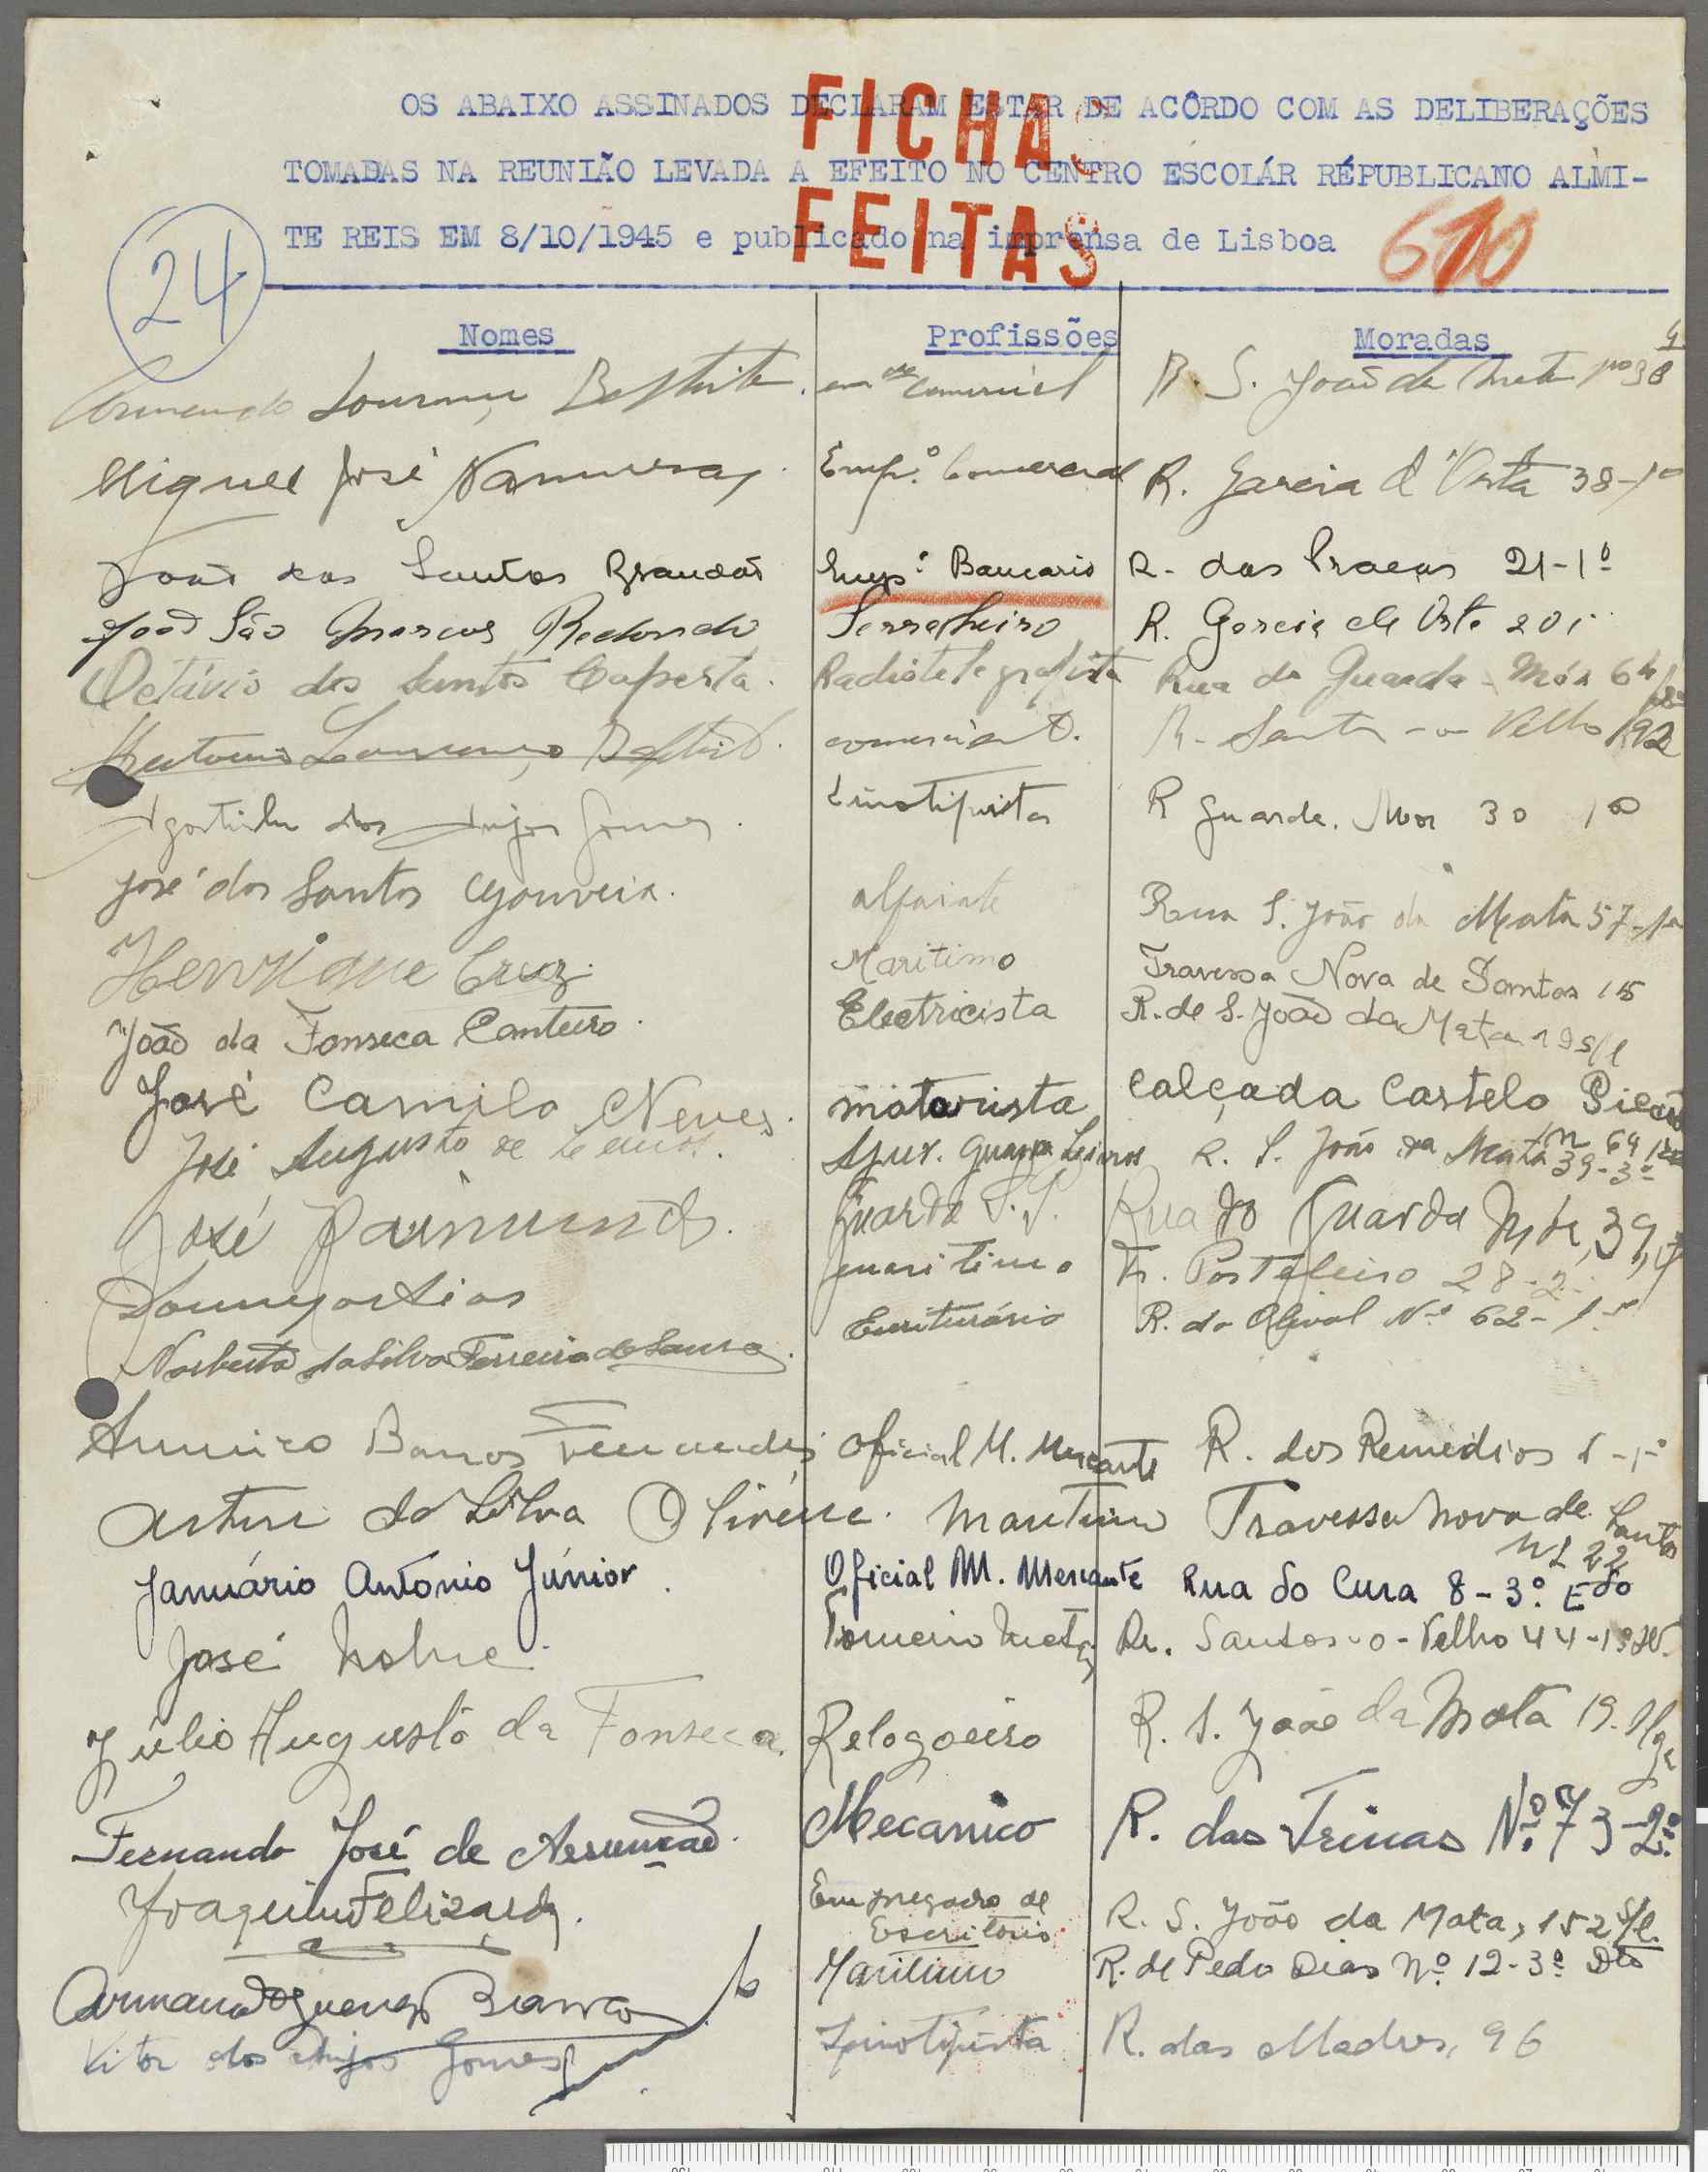 OS ABAIXO ASSINADOS DECLARAM ESTAR DE ACÔRDO COM AS DELIBERAÇÕES
TOMADAS NA REUNIÃO LEVADA A EFEITO NO CENTRO ESCOLÁR RÉPUBLICANO ALMI-
TE REIS EM 8/10/1945 e publicado na imprensa de Lisboa
FICHAS
FEITAS
610
24
Nomes Profissões Moradas
Armando Lourenço R. S. João da
Miguel José Emp.º Comercial R. Garcia d'Orta 38-1º
João dos Santos Brandão Emp. Bancario R. das Praças 21-1º
João São Marcos Redondo Serralheiro R. Garcia de Orta 20
Octávio dos Santos Radiotelegrafista Rua da Guarda-Mór
Lourenço R. Santos-o-Velho 92
dos Anjos Gomes Linotipista R Guarda. Mor 30 1º
José dos Santos Gouveia. alfaiate Rua S. João da Mata 57-1º
Henrique Cruz. Maritimo Travessa Nova de Santos 15
João da Fonseca Canteiro. Electricista R. de S. João da Mata
José Camilo Neves. motorista calçada Castelo Picão
n 64
José Augusto de Lemos. R. S. João da Mata 39-3º
José Raimundo. Guarda Rua do Guarda Mór, 39,
Domingos Dias maritimo Tr. 28-2.
Norberto da Silva Ferreira de Sousa. Escriturário R. do Olival Nº 62-1º
Barros Fernandes Oficial M. Mercante R. dos Remedios
Artur da Silva Maritimo Travessa Nova de Santos
Nº 22
Januário António Júnior. Oficial M. Mercante Rua do Cura 8-3º Edo
José Nobre. Torneiro R. Santos-o-Velho 44-1º
Júlio Augusto da Fonseca. Relogoeiro R. S. João da Mata 19.
Fernando José de Assunção. Mecanico R. das Trinas Nº 73-2º
Joaquim Felizardo. Empregado de
Escritório R. S. João da Mata, 152 s/l.
Armando Branco Maritimo R. de Pedro Dias Nº 12-3º Dto
Vitor dos Anjos Gomes Linotipista R. das Madres, 96